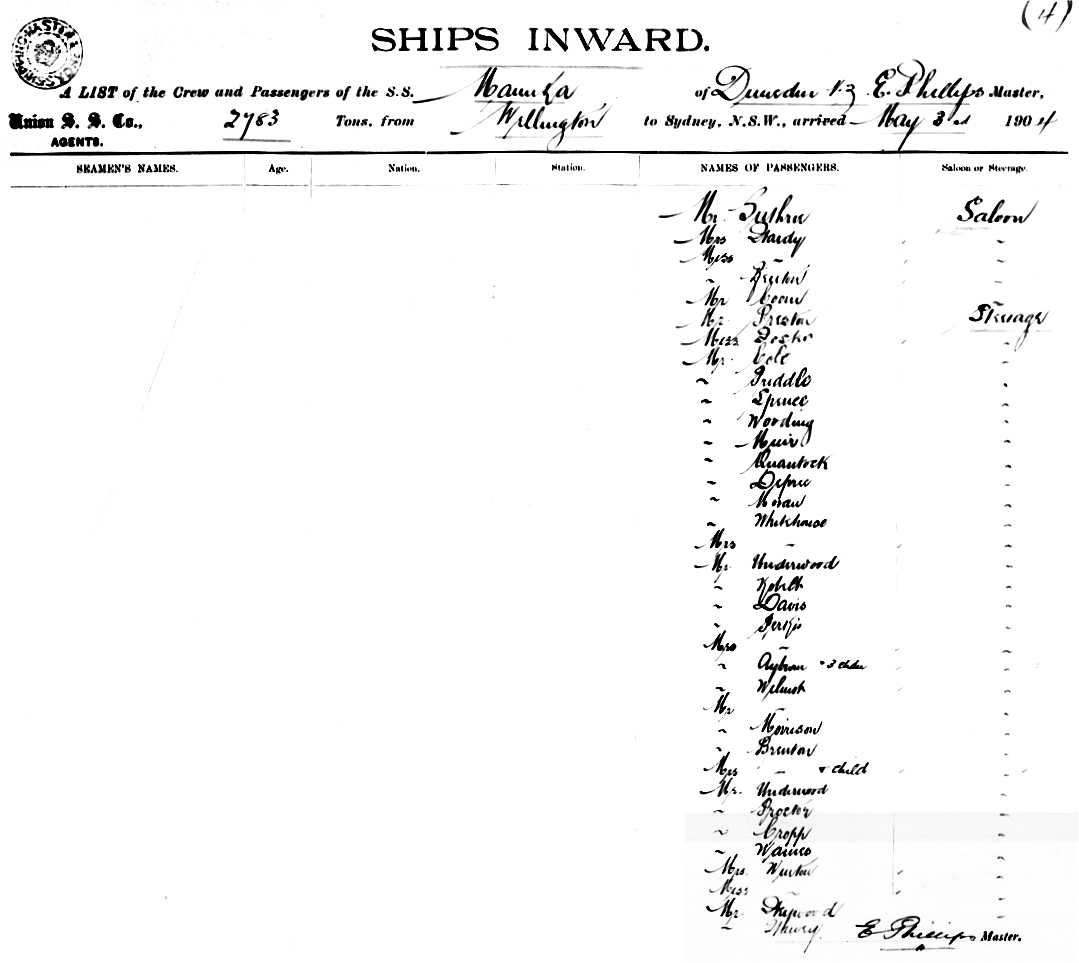 (4)
SHIPS INWARD.
A LIST of the Crew and Passengers of the S.S. Manuka of Dunedin N.Z E. Phillips Master,
Union S. S. Co., 2783 Tons, from Wellington to Sydney, N.S.W., arrived May 3rd 1904
AGENTS.
SEAMEN'S NAMES. Age. Nation. Station. NAMES OF PASSENGERS. Saloon or Steerage.
Mr Guthrie Saloon
Mrs Hardy "
Miss " "
" "
Mr "
Mr. Preston Steerage
Miss "
Mr. Cole "
" Priddle "
" Spruce "
" Wooding "
" Muir "
" Quantock "
" "
" Moran "
" Whitehouse "
Mrs " "
Mr. Underwood "
" "
" Davis "
" "
Mrs " "
" + 3 "
" "
Mr "
" Morrison "
" Brenton "
Mrs " + child "
Mr. Underwood "
" Proctor "
" Cropp "
" "
Mrs. "
Miss " "
Mr. "
" E Phillips Master.